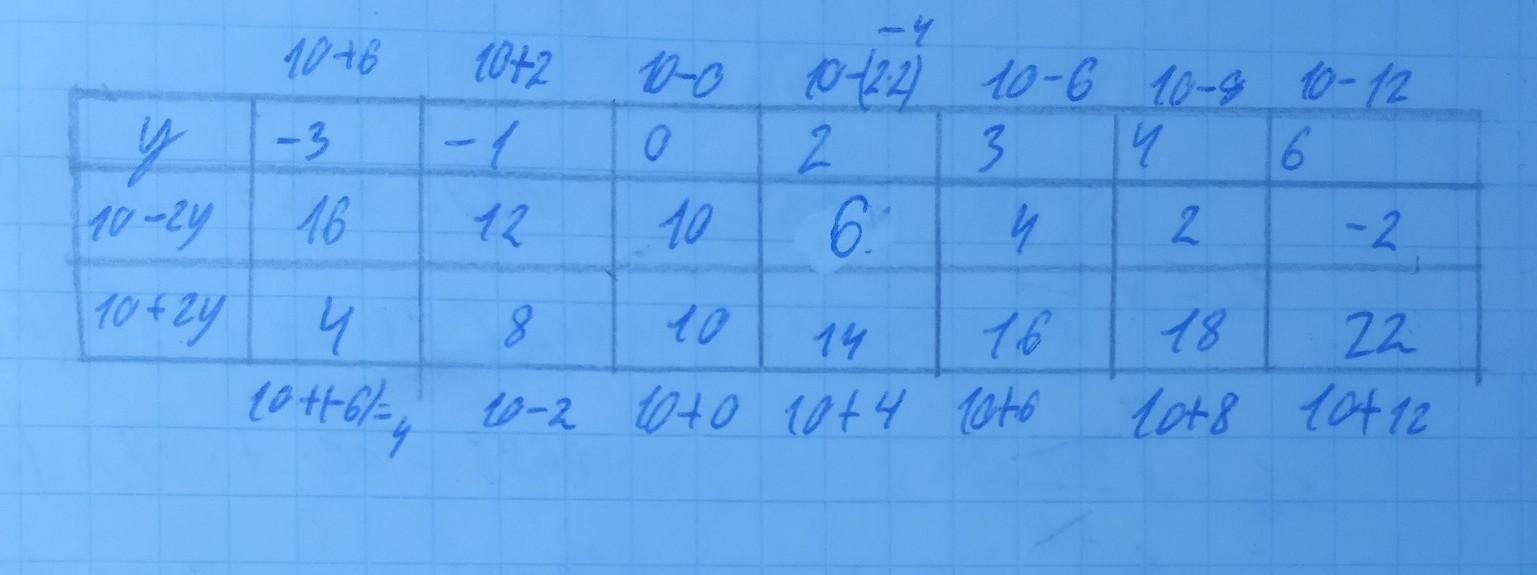 -4
10+6 10+2 10-0 10-(2·2) 10-6 10-8 10-12
y -3 -1 0 2 3 4 6
10-2y 16 12 10 6 4 2 -2
10+2y 4 8 10 14 16 18 22
10+(-6)=4 10-2 10+0 10+4 10+6 10+8 10+12